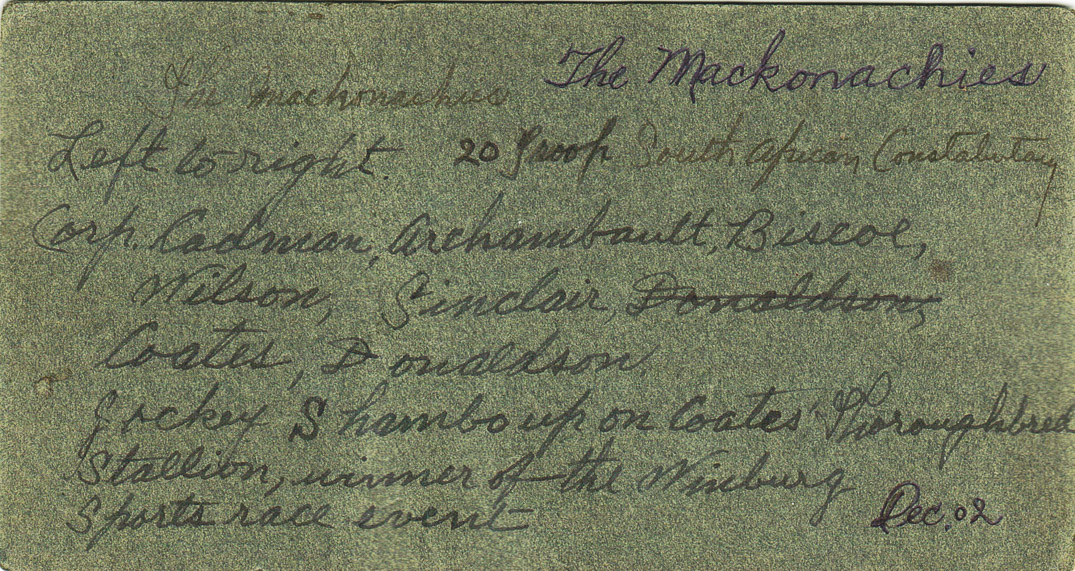 The Mackonachies
The Mackonachies
Left to right. 20 Troop South African Constabulary
Corp. Cadman, Archambault, Biscoe,
Wilson, Sinclair, ~~Donaldson,~~
Coates, Donaldson
Jockey Shambo up on Coates' Thoroughbred
Stallion, winner of the Winburg
Sports race event
Dec. 02